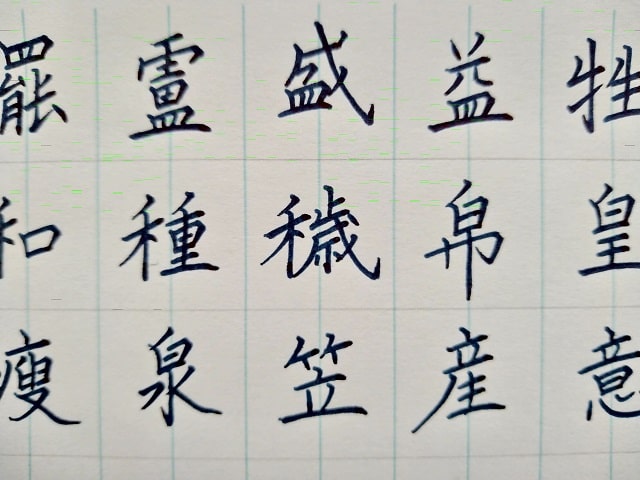 罷盛益牲
和種穢帛皇
痩泉笠産意